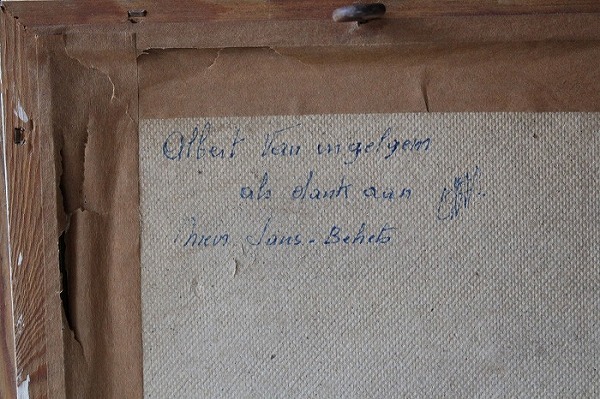 Albert Van ingelgem
als dank aan
Jans-Behets